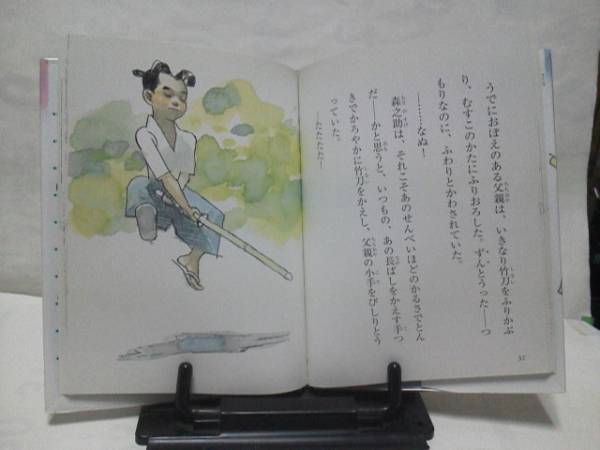 うでにおぼえのある父親は、いきなり竹刀をふりかぶ
り、むすこのかたにふりおろした。ずんとうった――つ
もりなのに、ふわりとかわされていた。
――なぬ！
森之助は、それこそあのせんべいほどのかるさでとん
だ――かと思うと、いつもの、あの長ばしをかえす手つ
きでかろやかに竹刀をかえし、父親の小手をびしりとう
っていた。
――たたたた！
37